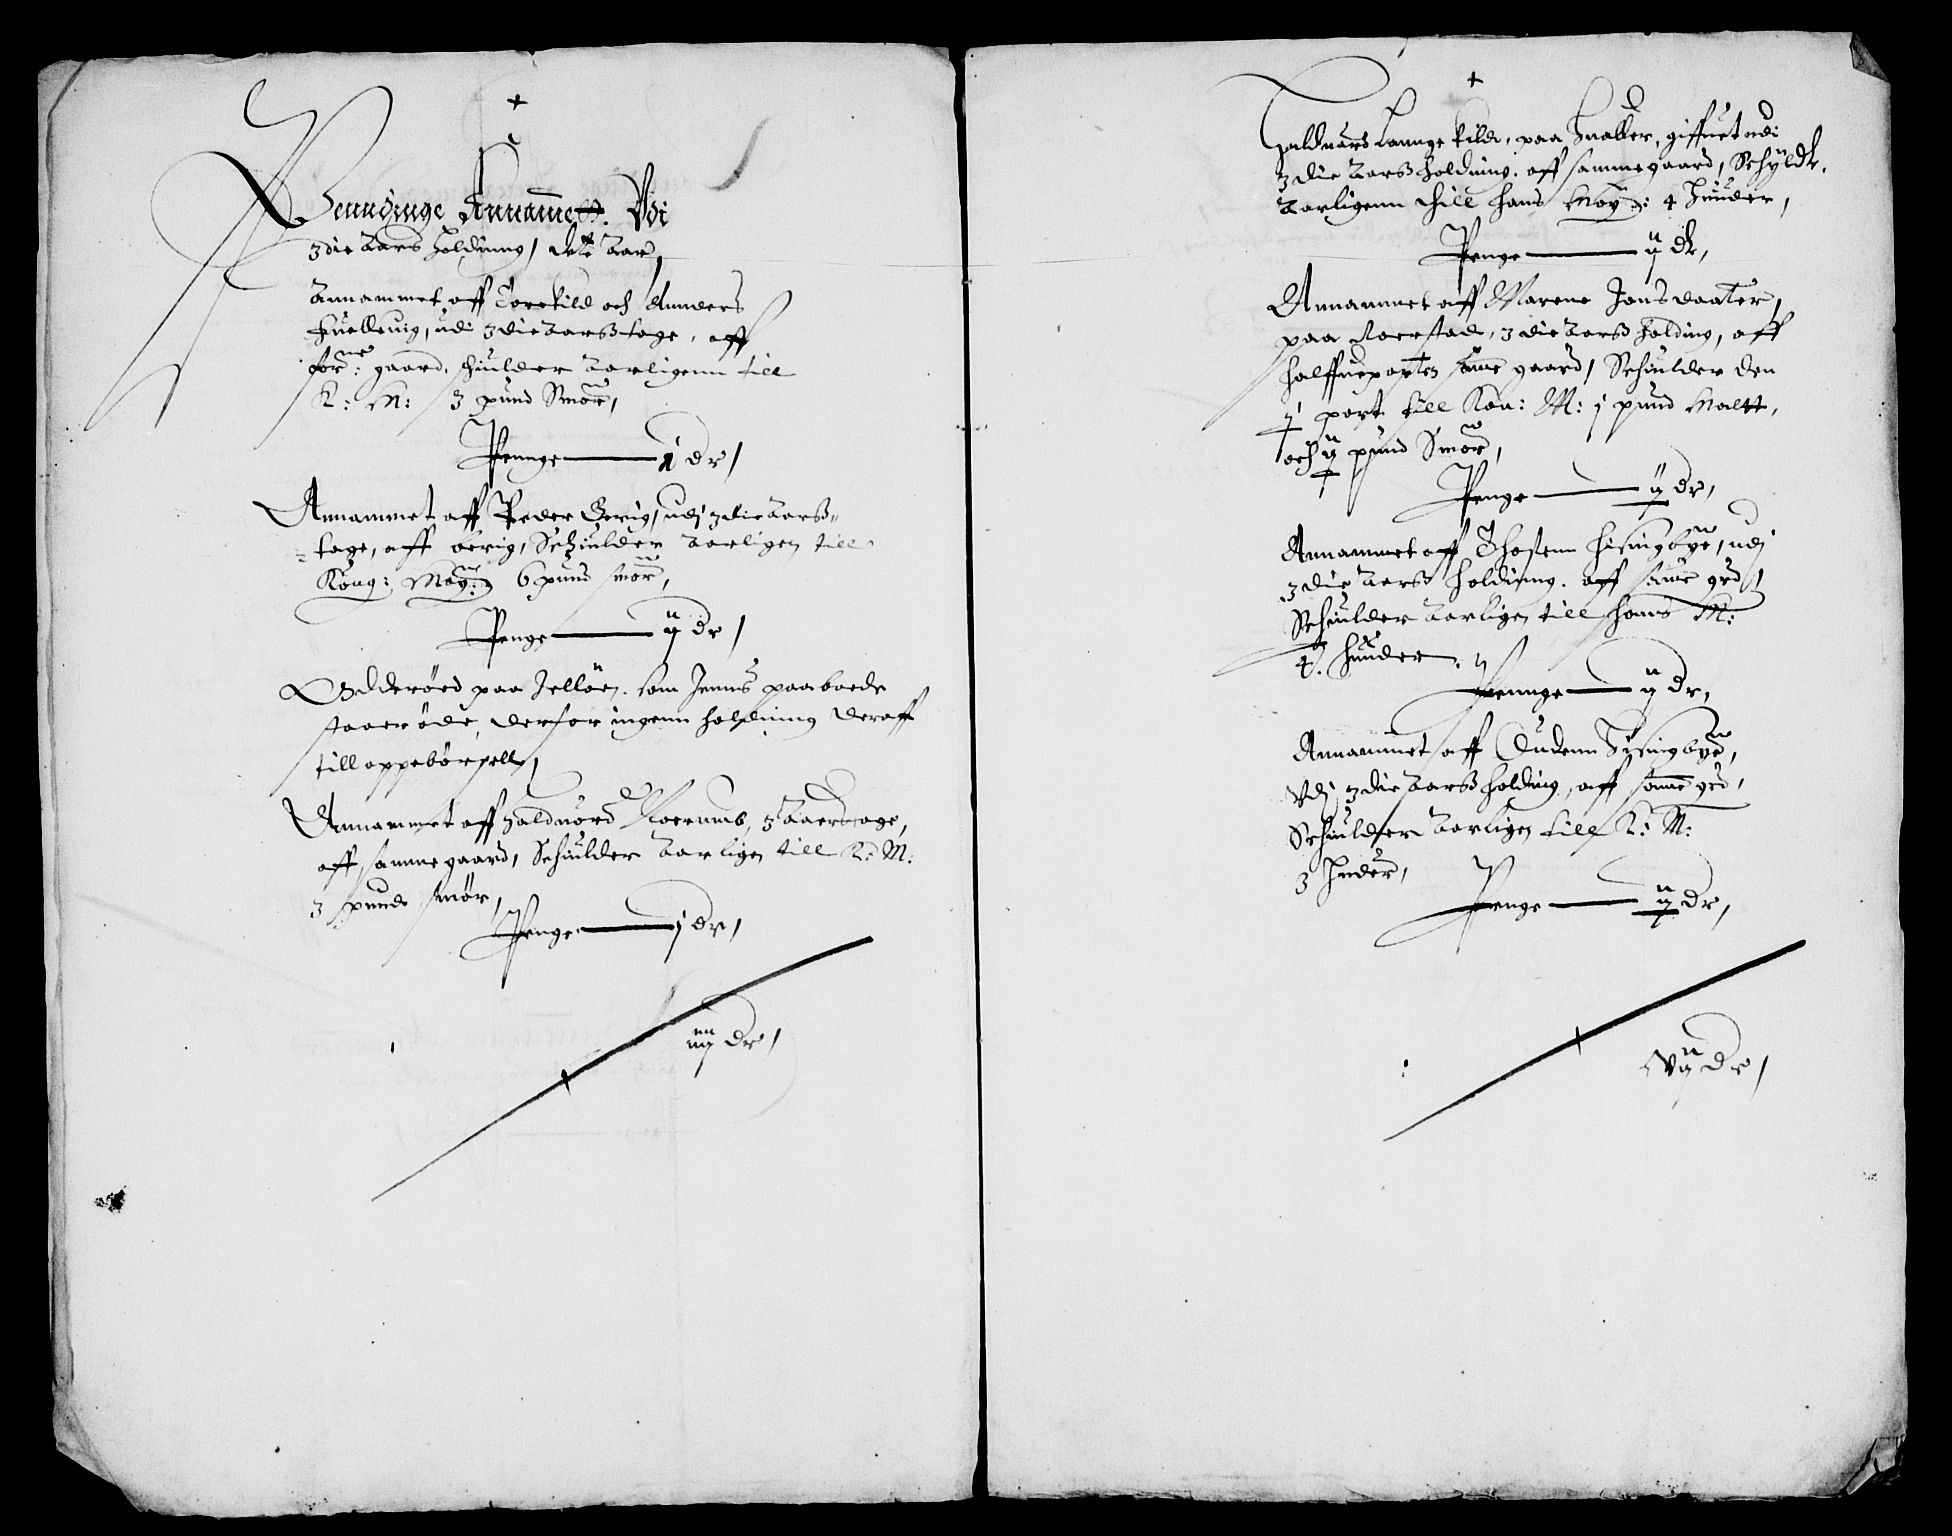 Penndinge Annammett. Vdi
3die Aars holdning, dette Aar,
Annammet aff Torekild och Anders
Huelleuig, udi 3die Aarss tage, aff
forne: gaard, schiulder Aarligenn till
K: M: 3 pund Smør,
Pennge 1 dr,
Annammet aff Peder Berig, udj 3die Aarss-
tage, aff berig, Schiulder Aarligen till
Kong: May: 6 pund smør,
Penge ij dr,
Odderöed paa Jellöen. som Jenns paaboede
staaer øde, derfor ingenn holdning deraff
till oppebörsell,
Annammet aff Haldword Roerumb, 3 Aaers tage,
aff samme gaard, Schiulder Aarligen till K: M:
3 pund smør,
Penge j dr,
iiij dr,
Halduard Lannge kilde, paa Hualler, giffuet udi
3die Aarss holdning. aff samme gaard, Schyldr.
Aarligenn thill hans May: 4 Huuder,
Penge ij dr,
Annammet aff Marene Jons daater,
paa Roerstad, 3die Aarss holding, aff
halffueparten samme gaard, Schiulder den
part till Kon: M: j pund Maltt,
och pund Smør,
Penge ij dr,
Annammet aff Thostenn Hisingbye, udj
3die Aarss holdinng. aff samme grd,
Schiulder Aarligen till hans M:
4. huuder,
Pennge ij dr,
Annammet aff Gudenn Sisingbye,
Vdj 3die Aarss holding, aff samme grd,
Schiulder Aarligen till K: M:
3 Huder,
Penge ij dr,
Viij dr,